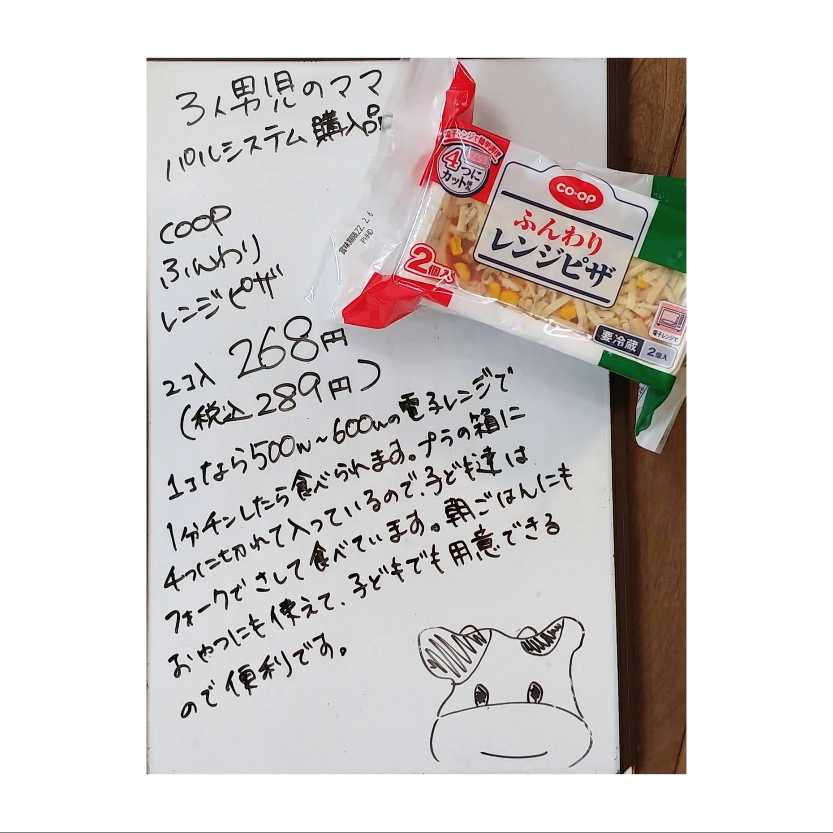 3人男児のママ
パルシステム購入品
COOP
ふんわり
レンジピザ
2コ入 268円
(税込289円)
1コなら500W~600Wの電子レンジで
1分チンしたら食べられます。プラの箱に
4つに切れて入っているので、子ども達は
フォークでさして食べています。朝ごはんにも
おやつにも使えて、子どもでも用意できる
ので便利です。
4つに
カット済
CO・OP
ふんわり
レンジピザ
2個入
要冷蔵
2個入
電子レンジで
賞味期限22.2.6